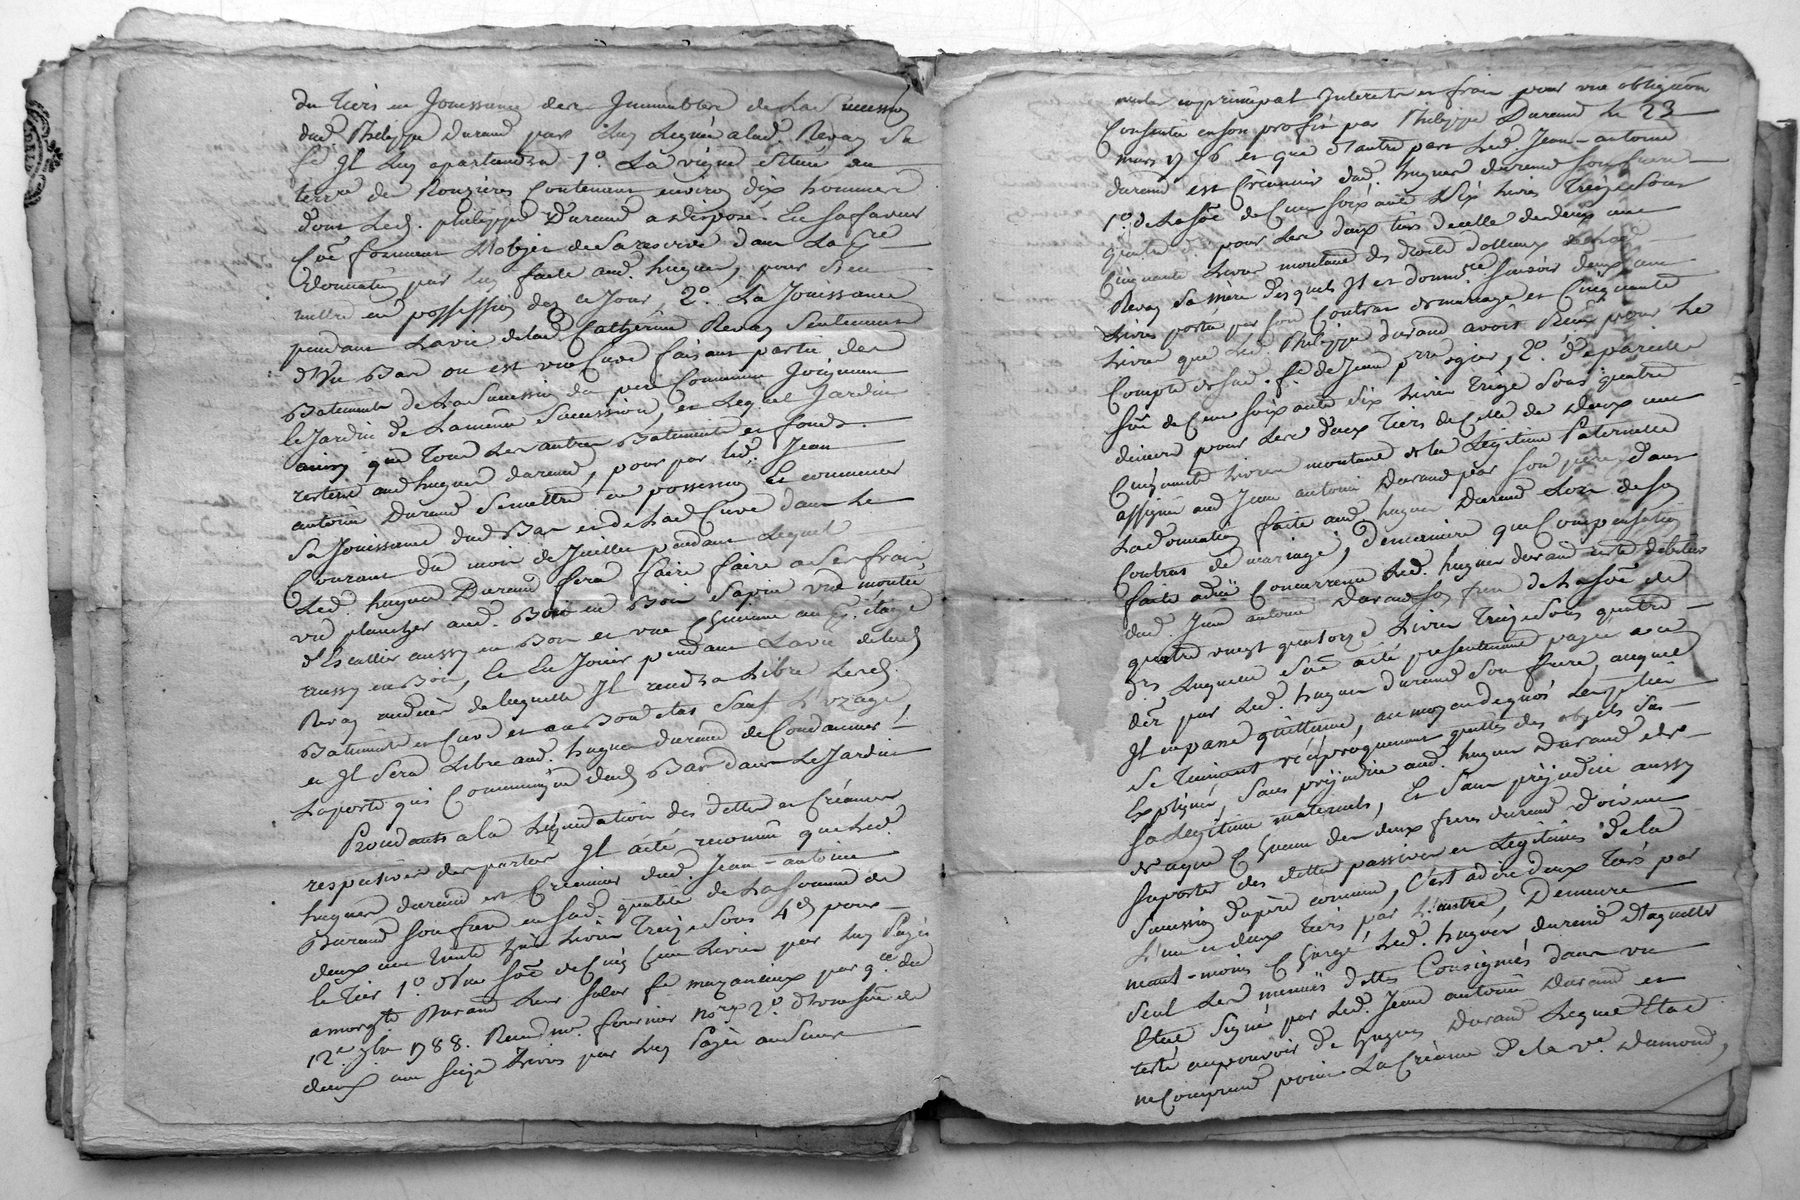 du tiers en Jouissance des Immeubles de la Succession
dud. Philippe Durand par luy leguée a lad. Revay sa
fe Il luy apartiendra 1º. La vigne située au
terroir de Rouzières Contenant environ dix hommes
dont led. philippe Durand a disposé En sa faveur
Côe formant l'objet de sa reserve dans la
donnation par luy faite aud. hugues, pour s'en
mettre en possession dez ce Jour, 2º. La Jouissance
pendant la vie de lad. Catherine Revay Seulement
d'Un Bas ou est une Cuve faisant partie des
Batiments de la Succession du pere Commun Joignant
le Jardin de la même Succession, et lequel Jardin
ainsy que Tous les autres Batiments et fonds
resteront aud hugues durand, pour par led. Jean
antoine Durand Se mettre en possession Et commencer
Sa Jouissance dud Bas et de lad Cuve dans le
Courant du mois de Juillet pendant lequel
Led. hugues Durand fera faire faire a ses frais
un plancher aud. Bas en Bois Sapin une montée
d'Escallier aussy en Bois et une au étage
aussy en Bois, Et En Jouir pendant La vie de lad
Revay audecès de laquelle Il rendra Libre Lesd.
Batiments et Cuve et en Bon état Sauf L'uzage,
et Il Sera Libre aud. hugues durand de Condamner
La porte qui Communique dud Bas dans Le Jardin
Procedants a la Liquidation des dettes et Créances
respectives des parties Il a été reconnu que led.
hugues durand est Créancier dud. Jean-antoine
Durand son frere en sad. qualité de La somme de
deux cent trente huit Livres Treize Sous 4d pour
le Tiers 1º. d'Une Sôe de Cinq Cent Livres par luy Payée
Durand Leur Soeur fe mazanieux par qce. du
12e. 9bre 1788. Reçu me. fournier nore 2º. d'Une Sôe de
deux cent seize Livres par luy Payée au Sieur
en principal Interets et frais pour une obligaôn
Consentie en son profit par Philippe Durand le 23
mars 1776 et que d'autre part led. Jean-antoine
durand est Créancier dud. hugues durand son frere
1º. de la Sôe de Cent soixante Dix livres Treize Sous
quatre d. pour Les deux tiers de celle de deux cent
Cinquante Livres montant des droits
Revay Sa mère desquels Il est donnre. Savoir deux cent
Livres portés par son Contrat de mariage et Cinquante
Livres que led. Philippe durand avoit pour le
Compte de sad. fe. de Jean, 2º. de pareille
Sôe de Cent Soixante dix Livres treize Sous quatre
deniers pour les deux Tiers de Celle de Deux cent
Cinquante Livres montant de la Légitime Paternelle
assignée aud Jean antoine Durand par Son pere dans
La donnation faite aud. hugues Durand Lors de Son
Contrat de mariage, de maniere que Compensation
faite a due Concurrence Led. hugues durand reste débiteur
dud. Jean antoine Durand Son frere de la Sôe de
quatre vingt quatorze Livres Treize Sous quatre
drs Laquelle Sôe a été presentement payée a ce
der. par Led. hugues durand Son frere, auquel
Il en passe quittance, au moyen de quoi Les parties
Se tiennent réciproquement quittes des objets Sus
Expliqués, Sans préjudice aud. hugues Durand de
Sa Légitime maternelle, Et Sans préjudice aussy
a Chacun des deux freres durand
Suportés des dettes passives et Légitimes de la
Succession du père comun, C'est a dire deux tiers par
L'un et deux Tiers par L'autre, Demeure
neant-moins Chargé Led. hugues durand d'aquitter
Seul Les menues dettes Consignées dans un
Etat Signé par led. Jean antoine Durand et
resté au pouvoir de hugues Durand Lequel Etat
ne Comprend point La Créance de la ve. Dumond,